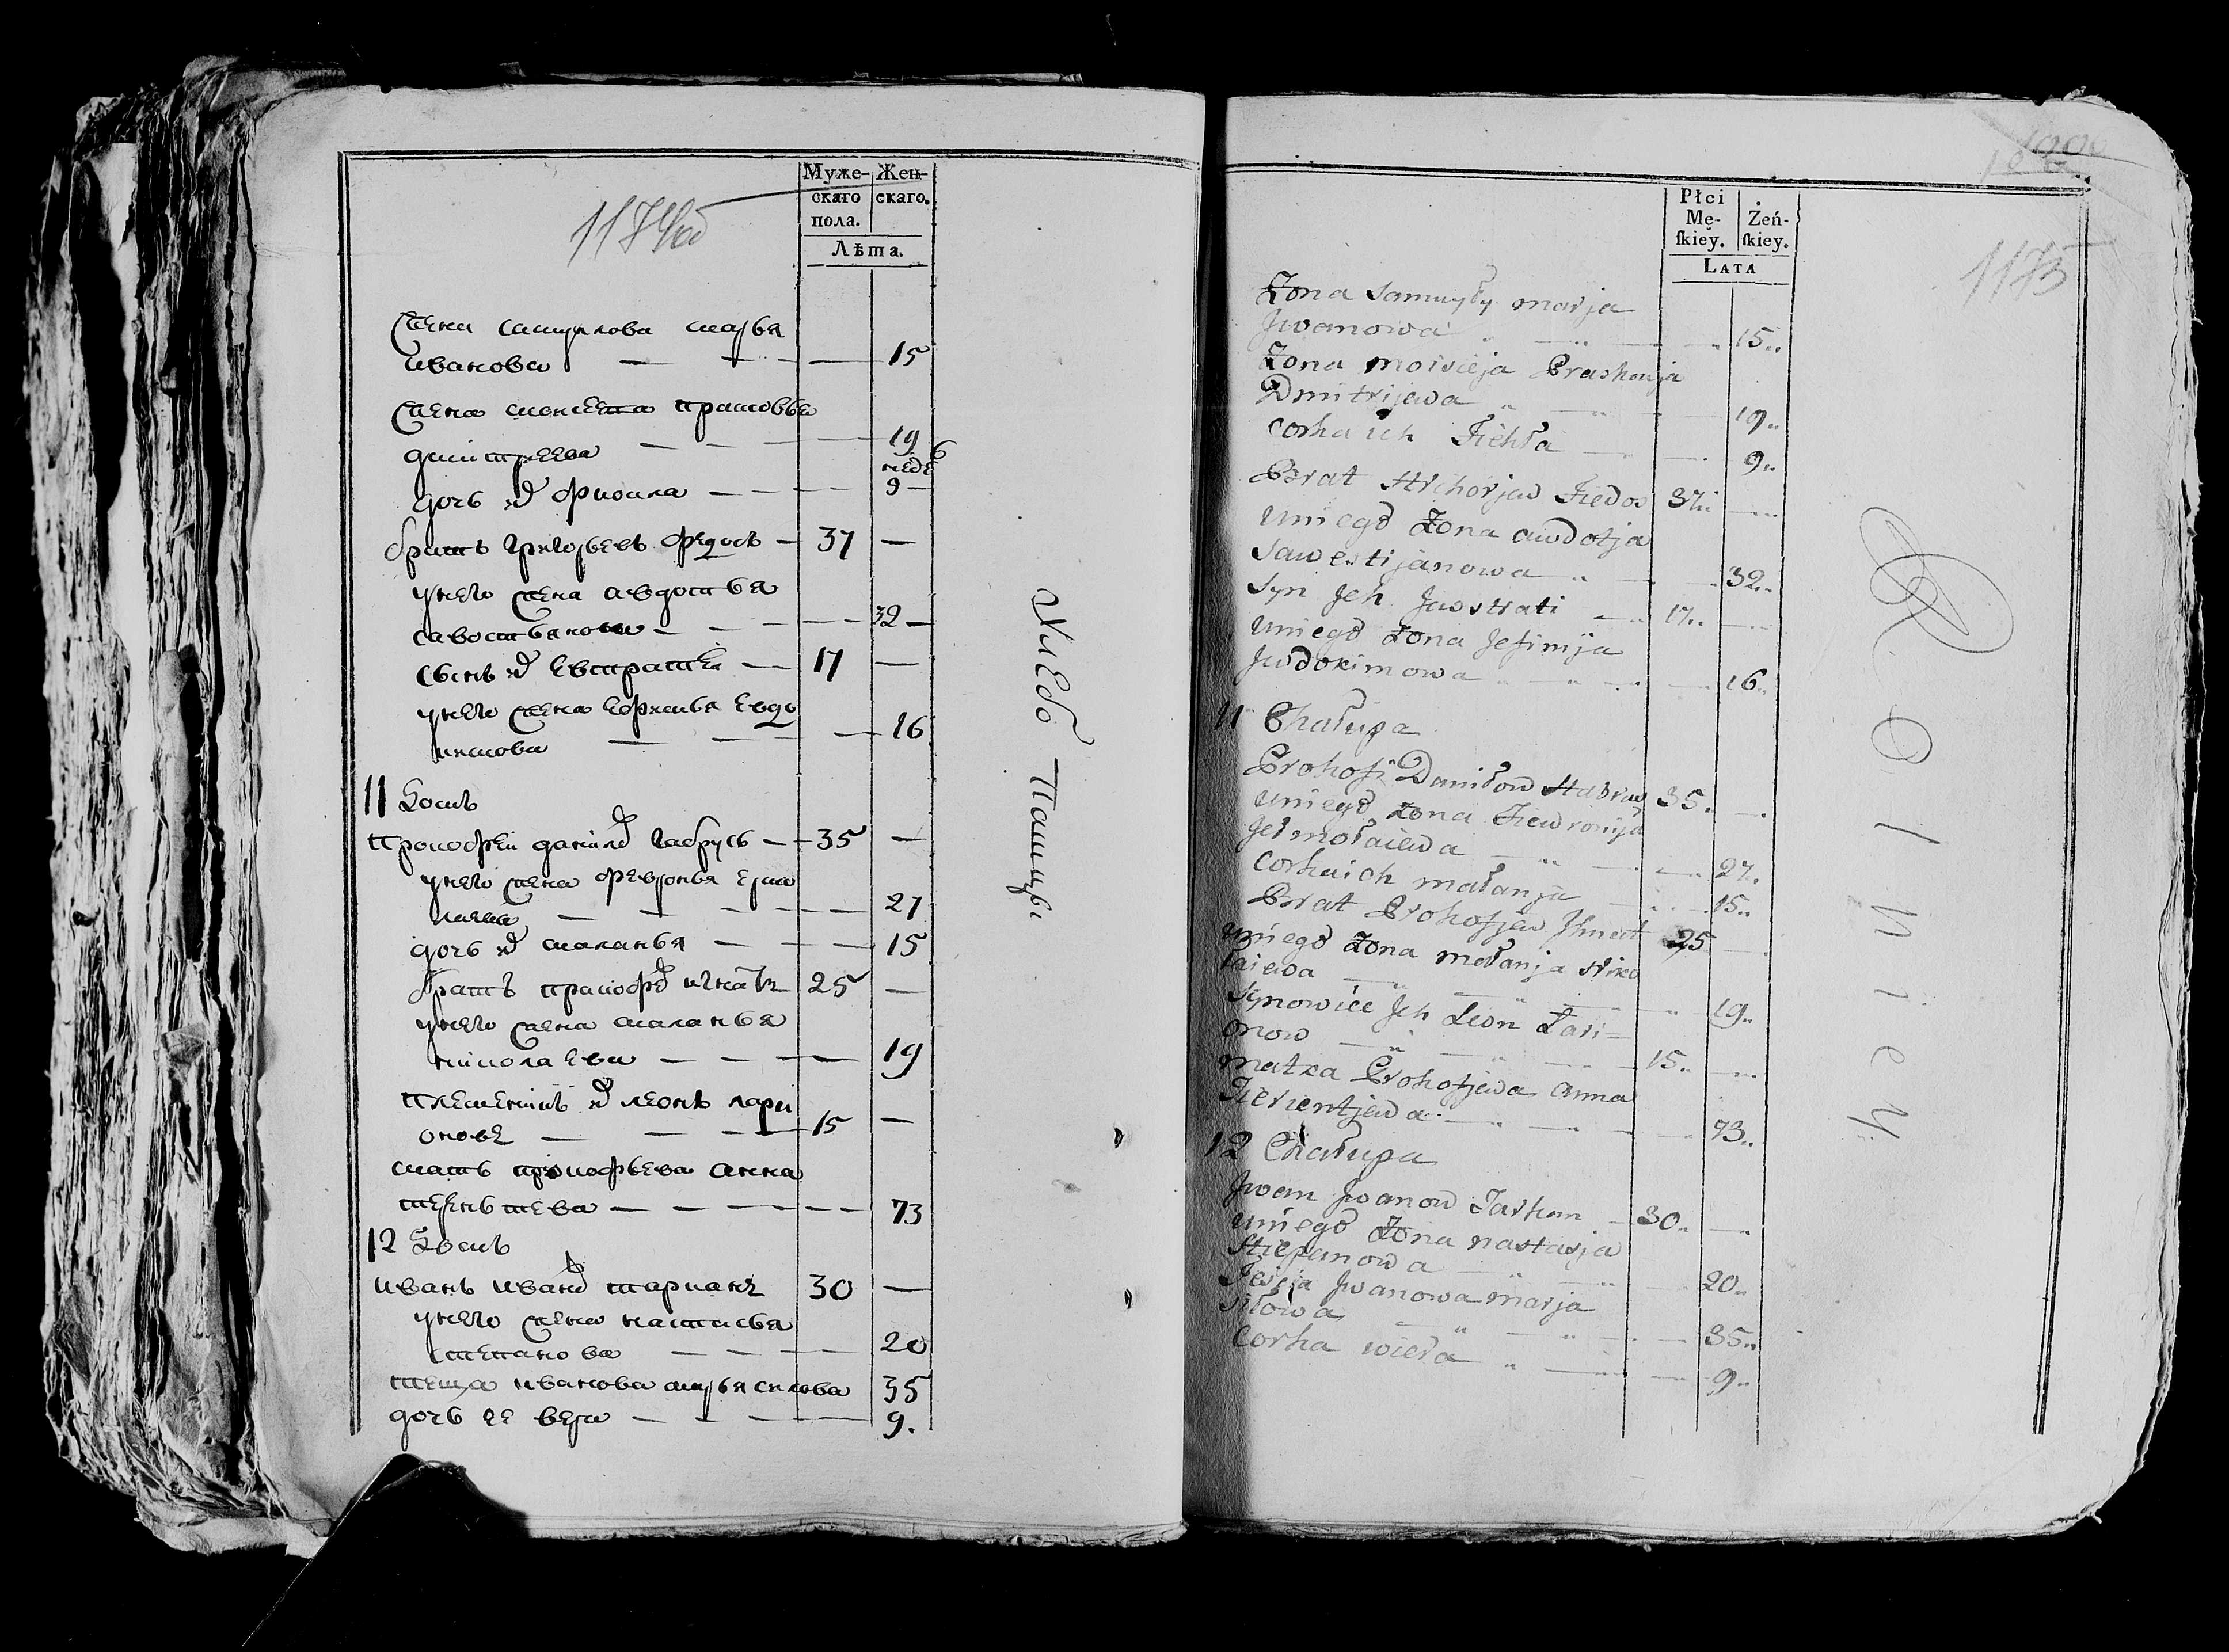 1174об
Муже-
скаго
пола.
Жен-
скаго.
Лѣта.
Жена самуилова марья
иванова — — — 15
Жена моисеева прасковья
дмитреева — — — 19
недѣ 6
дочь их фиокла — — — 9 —
братъ григорьевъ федосъ — 37 —
у него жена авдотья
савостьянова — — — 32 —
сынъ их евстратей — 17 —
у него жена ефимья евдо
кимова — — — 16
11 Домъ
прокофей данилов габрусь — 35 —
у него жена февронья ермо
лаева — — — 27
дочь их маланья — — — 15
братъ прокофьев игнатъ 25 —
у него жена маланья
николаева — — — 19
племенникъ их леонъ лари
оновъ — — — 15 —
мать прокофьева анна
терентева — — — 73
12 Домъ
иванъ иванов тарканъ 30 —
у него жена настасья
степанова — — — 20
теща иванова марья силова 35
дочь ее вера — — — 9.
Хлебо Пашцы
1175
Płci
Mę-
ſkiey.
Żeń-
ſkiey.
LATA
Żona Samuyły marja
Jwanowa 15..
Żona moisieja Praskowja
Dmitrijewa 19..
Corka ich Fiekła 9..
Brat Hrehorjew Fiedos 37..
uniego Żona awdotja
Sawestijanowa 32..
Syn Jch Jewstrati 17..
uniego Żona Jefimija
Jwdokimowa 16..
11 Chałupa
Prokofi Daniłow Habrus 35.
uniego Żona Fiewronija
Jermołaiewa 27..
Corka ich małanja 15..
Brat Prokofjew Jhnat 25
uniego Żona małanja Niko
łaiewa 19..
Synowiec Jch Leon Łari=
onow 15..
matka Prokofjewa Anna
Tierientjewa 73..
12 Chałupa
Jwan Jwanow Tarkan 30..
uniego Żona nastasja
Stiepanowa 20..
Teścja Jwanowa marja
Siłowa 35..
Corka wiera 9..
Rolnicy